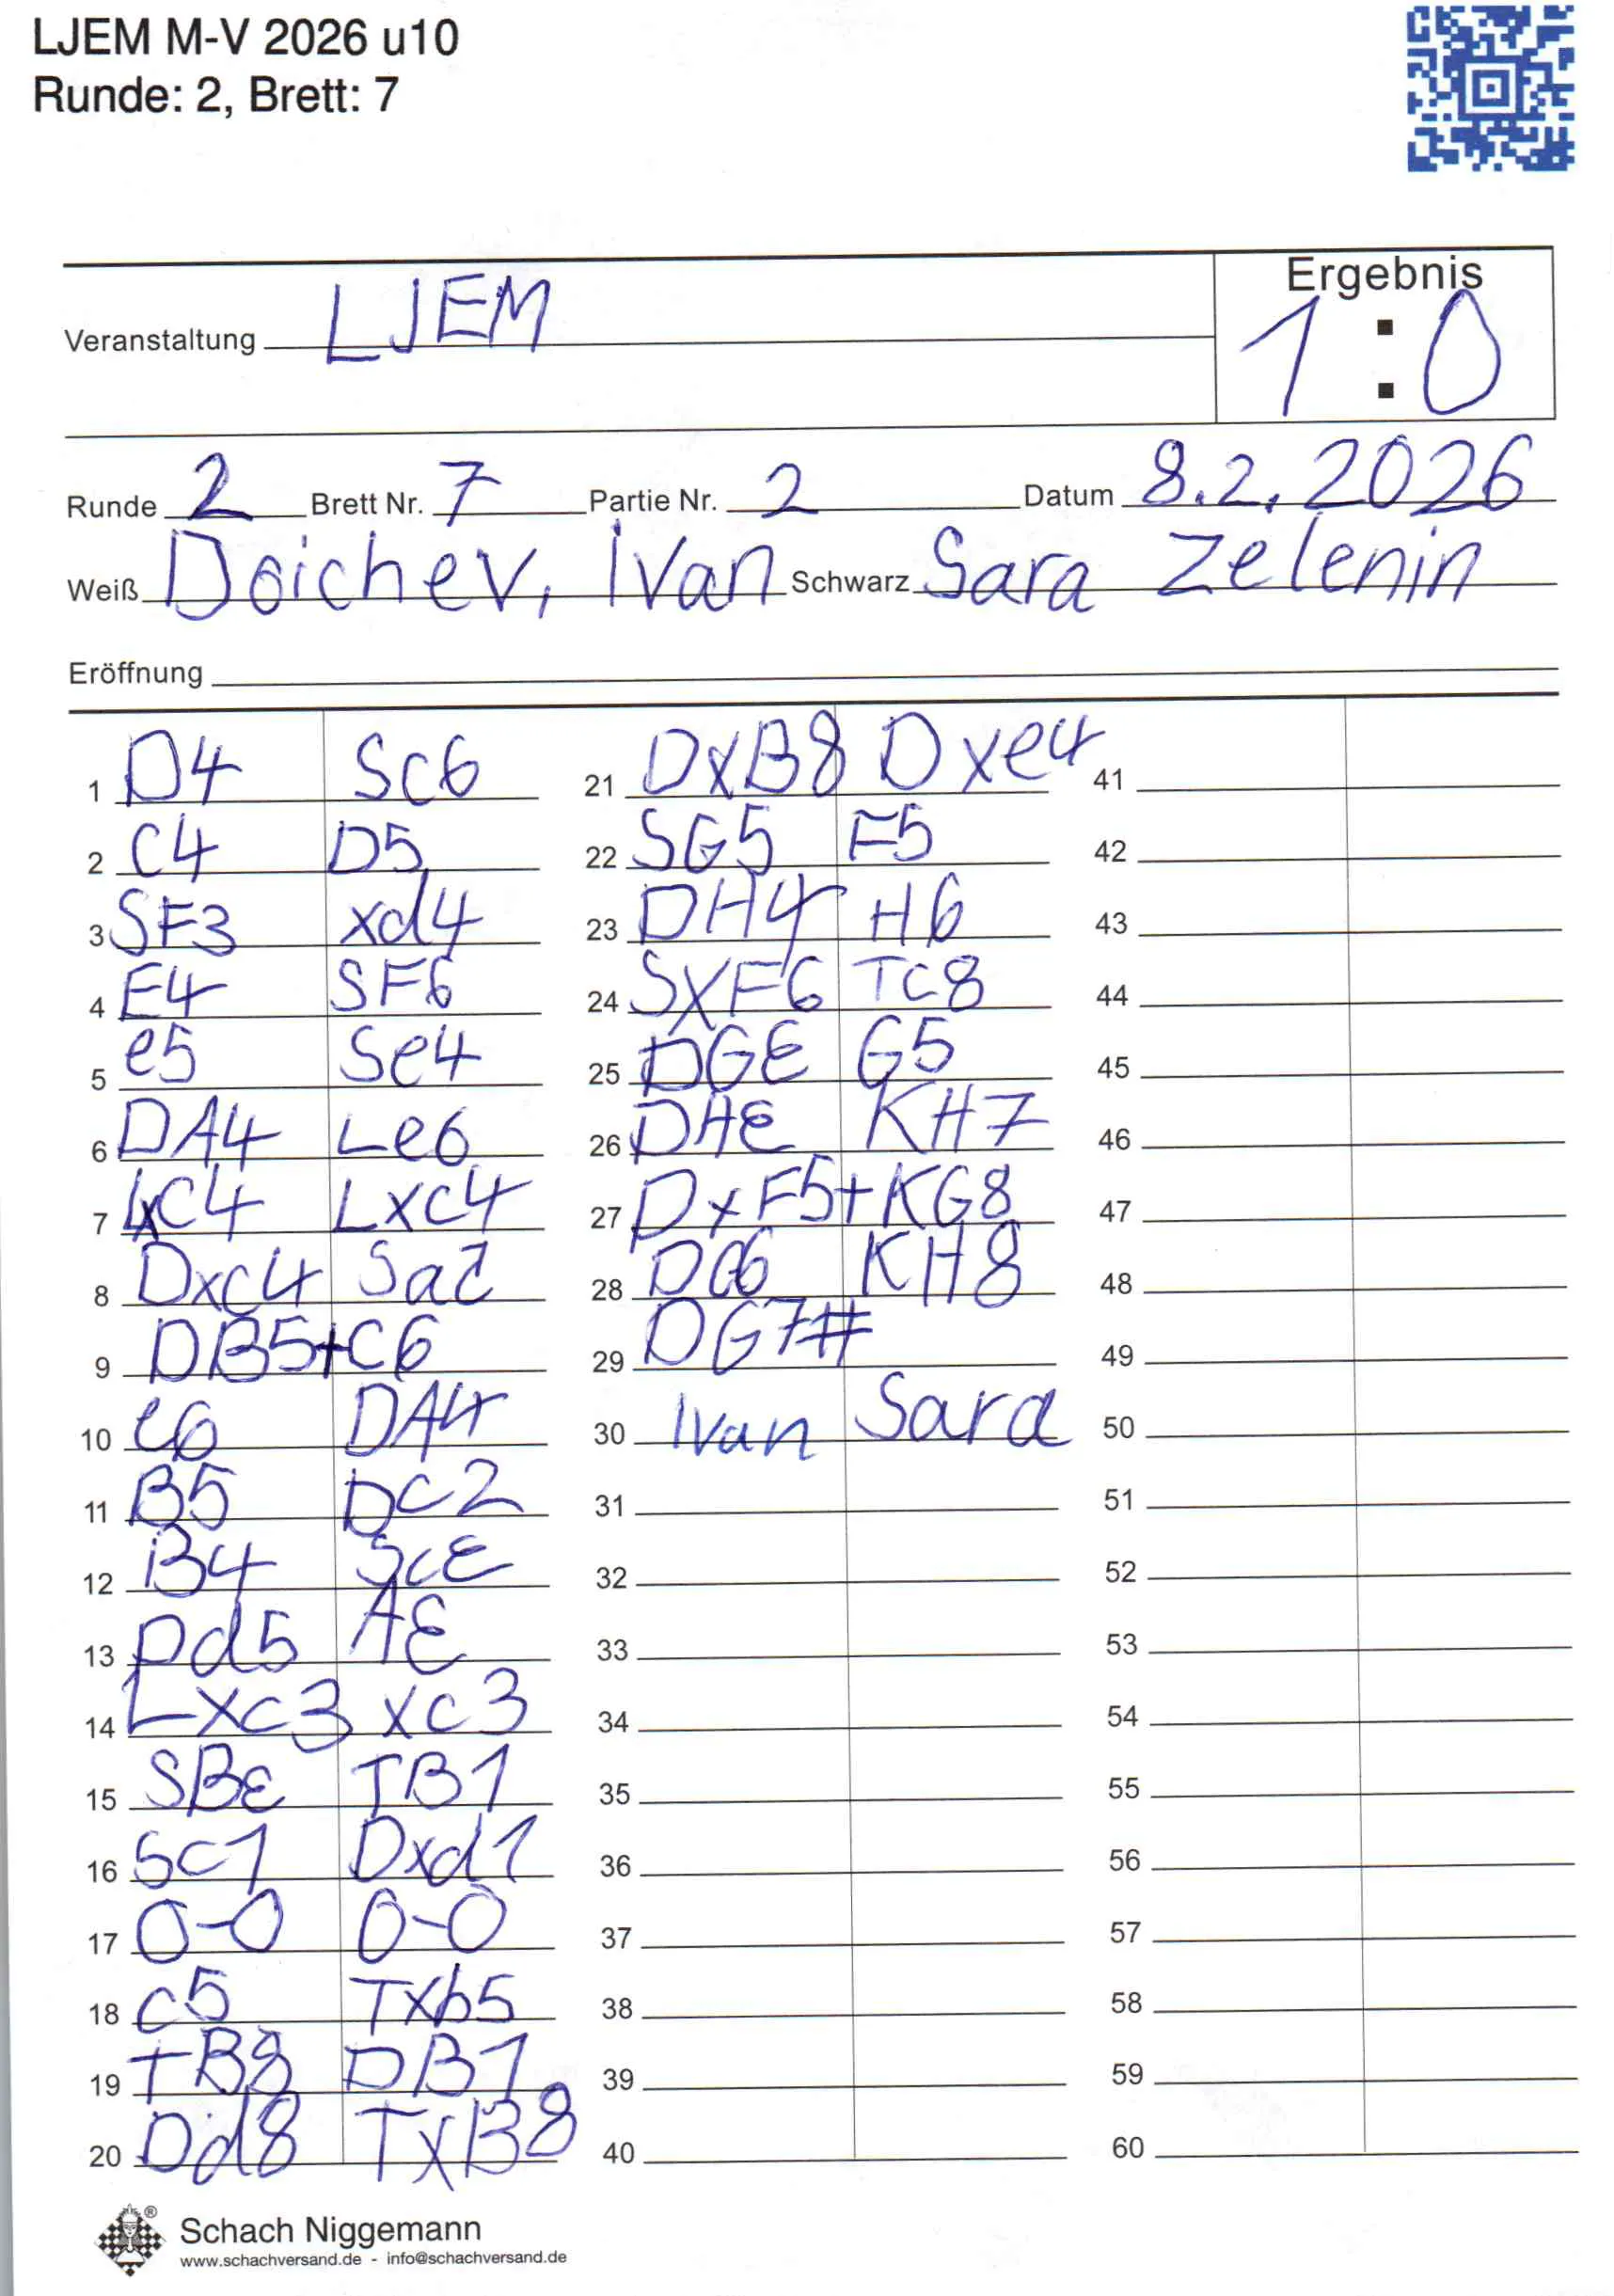 LJEM M-V 2026 u10
Runde: 2, Brett: 7
Ergebnis
Veranstaltung LJEM
1 : 0
Runde 2 Brett Nr. 7 Partie Nr. 2 Datum 8.2.2026
Weiß Doichev, Ivan Schwarz Sara Zelenin
Eröffnung
1 D4 Sc6
2 C4 D5
3 SF3 xd4
4 E4 SF6
5 e5 Se4
6 DA4 Le6
7 LxC4 Lxc4
8 Dxc4 Sa2
9 DB5+ C6
10 e6 DA4
11 B5 Dc2
12 B4 ScE
13 Dd5 AE
14 Lxc3 xc3
15 SBE TB1
16 Sc1 Dxd1
17 0-0 0-0
18 c5 Txb5
19 TB8 DB1
20 Dd8 TxB8
21 DxB8 Dxe4
22 SG5 F5
23 DH4 H6
24 SXF6 TC8
25 DGE G5
26 DHE KH7
27 DxF5+ KG8
28 DG6 KH8
29 DG7#
30 Ivan Sara
31
32
33
34
35
36
37
38
39
40
41
42
43
44
45
46
47
48
49
50
51
52
53
54
55
56
57
58
59
60
Schach Niggemann
www.schachversand.de - info@schachversand.de